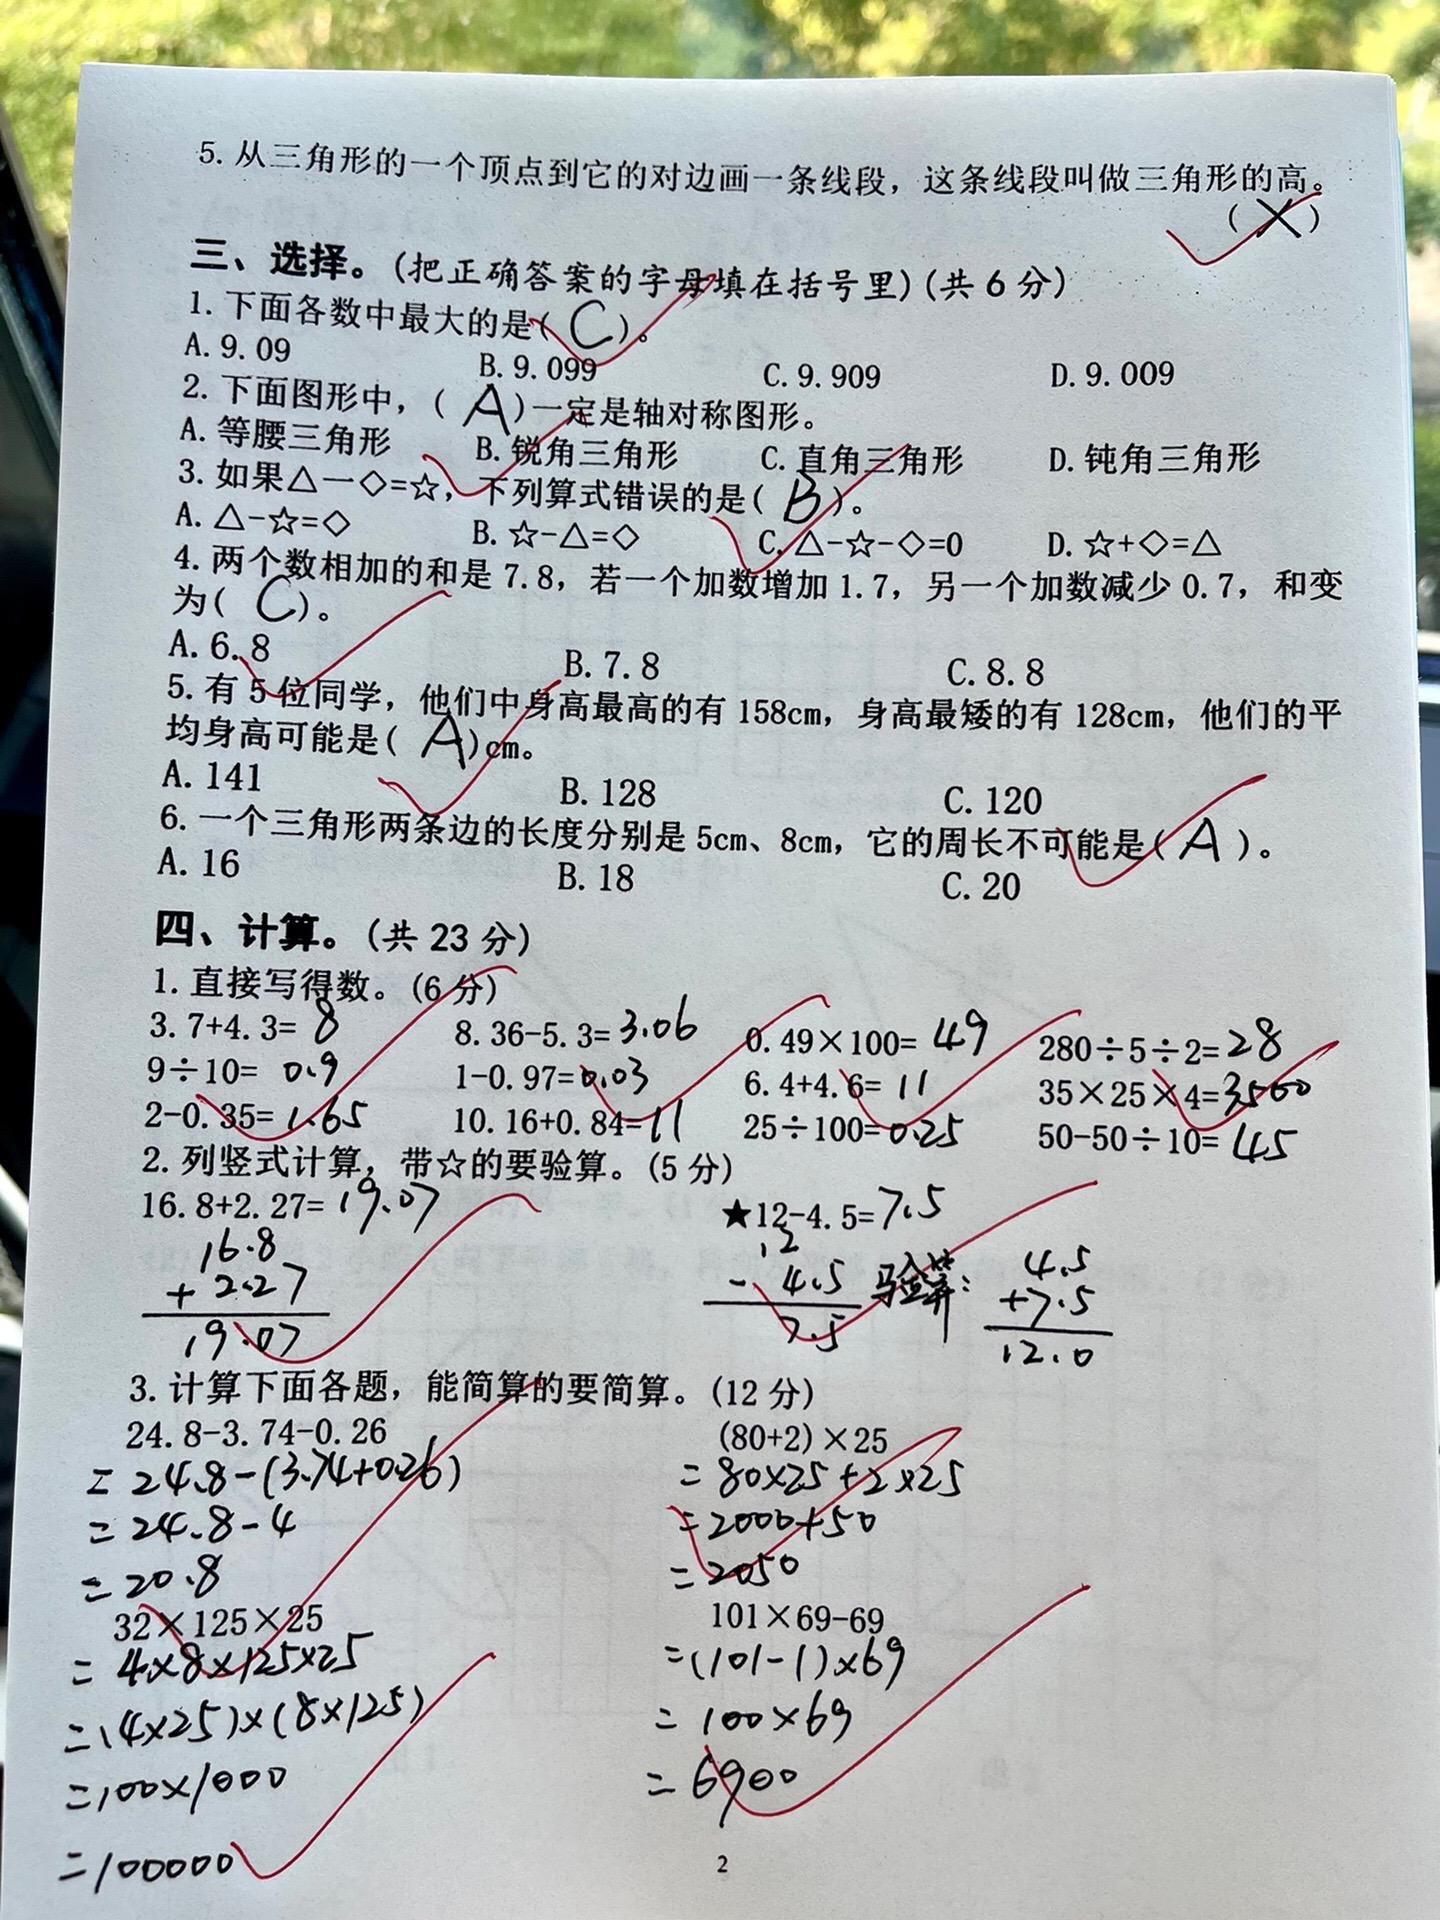 5. 从三角形的一个顶点到它的对边画一条线段，这条线段叫做三角形的高。
(X)
三、选择。(把正确答案的字母填在括号里)(共6分)
1. 下面各数中最大的是( C )。
A. 9.09 B. 9.099 C. 9.909 D. 9.009
2. 下面图形中，( A )一定是轴对称图形。
A. 等腰三角形 B. 锐角三角形 C. 直角三角形 D. 钝角三角形
3. 如果△一◇=☆，下列算式错误的是( B )。
A. △-☆=◇ B. ☆-△=◇ C. △-☆-◇=0 D. ☆+◇=△
4. 两个数相加的和是7.8，若一个加数增加1.7，另一个加数减少0.7，和变
为( C )。
A. 6.8 B. 7.8 C. 8.8
5. 有5位同学，他们中身高最高的有158cm，身高最矮的有128cm，他们的平
均身高可能是( A )cm。
A. 141 B. 128 C. 120
6. 一个三角形两条边的长度分别是5cm、8cm，它的周长不可能是( A )。
A. 16 B. 18 C. 20
四、计算。(共23分)
1. 直接写得数。(6分)
3.7+4.3= 8 8.36-5.3= 3.06 0.49×100= 49 280÷5÷2= 28
9÷10= 0.9 1-0.97= 0.03 6.4+4.6= 11 35×25×4= 3500
2-0.35= 1.65 10.16+0.84= 11 25÷100= 0.25 50-50÷10= 45
2. 列竖式计算，带☆的要验算。(5分)
16.8+2.27= 19.07 ★12-4.5= 7.5
16.8 12 4.5
+ 2.27 - 4.5 验算: +7.5
19.07 7.5 12.0
3. 计算下面各题，能简算的要简算。(12分)
24.8-3.74-0.26 (80+2)×25
= 24.8-(3.74+0.26) = 80×25+2×25
= 24.8-4 = 2000+50
= 20.8 = 2050
32×125×25 101×69-69
= 4×8×125×25 =(101-1)×69
=(4×25)×(8×125) = 100×69
=100×1000 = 6900
=100000
2